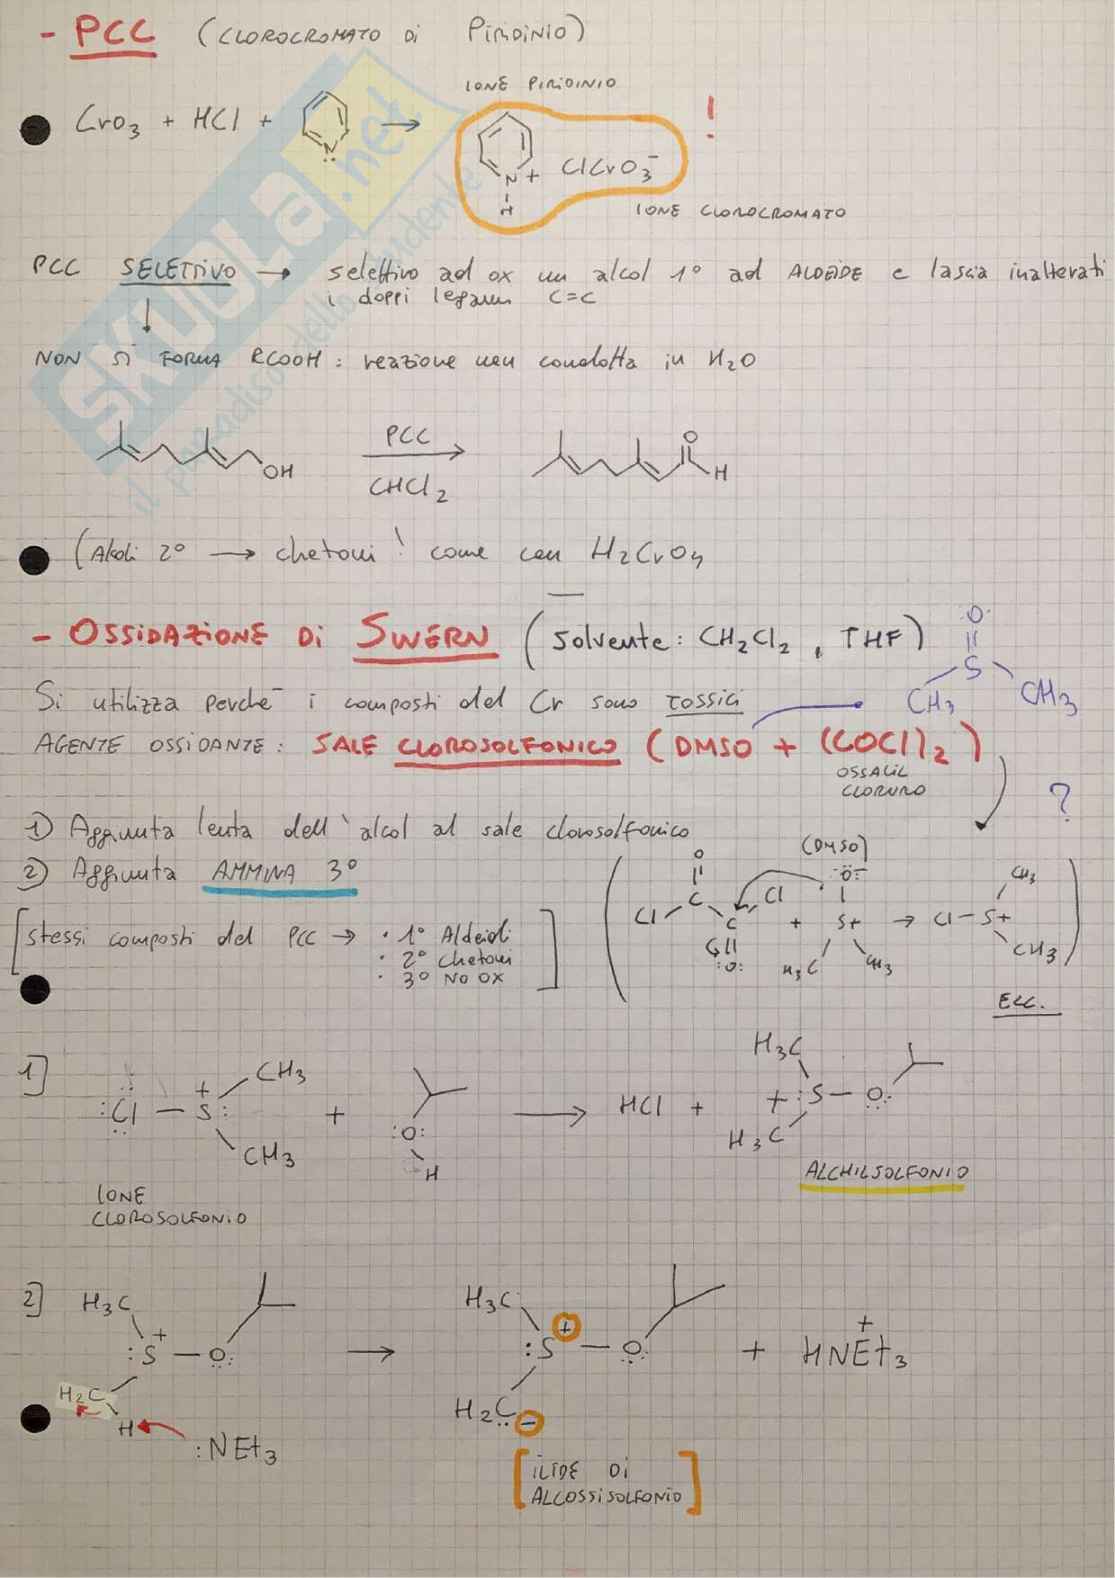 - PCC (CLOROCROMATO DI PIRIDINIO)
IONE PIRIDINIO
CrO3 + HCl + N: → N+ H ClCrO3- !
IONE CLOROCROMATO
PCC SELETTIVO → selettivo ad ox un alcol 1° ad ALDEIDE e lascia inalterati
i doppi legami C=C
NON SI FORMA RCOOH: reazione non condotta in H2O
OH PCC CHCl2 O H
(Alcoli 2° → chetoni! come con H2CrO4
- OSSIDAZIONE DI SWERN (solvente: CH2Cl2, THF)
O S CH3 CH3
Si utilizza perché i composti del Cr sono TOSSICI
AGENTE OSSIDANTE: SALE CLOROSOLFONICO (DMSO + (COCl)2)
OSSALIL
CLORURO
?
1) Aggiunta lenta dell'alcol al sale clorosolfonico
2) Aggiunta AMMINA 3°
[stessi composti del PCC → · 1° Aldeidi
· 2° Chetoni
· 3° NO OX]
(DMSO)
(O Cl C C Cl :O: + :O:- S+ H3C CH3 → Cl-S+ CH3 CH3)
ECC.
1] :Cl - S: + CH3 CH3 + :O: H → HCl + H3C + :S - O: H3C
ALCHILSOLFONIO
IONE
CLOROSOLFONIO
2] H3C :S+ - O: H2C H :NEt3 → H3C :S+ - O: H2C - + HNEt3 +
[ILIDE DI
ALCOSSISOLFONIO]
SKUOLA.net
il paradiso dello studente